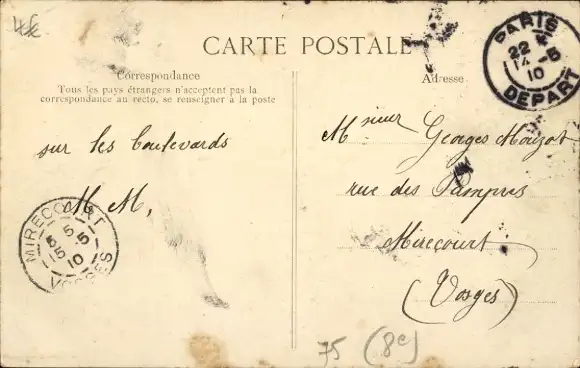 4€
CARTE POSTALE
Correspondance
Tous les pays étrangers n'acceptent pas la
correspondance au recto, se renseigner à la poste
sur les boulevards
M M,
MIRECOURT
15 5
10
VOSGES
Adresse
PARIS
22
14 - 5
10
DEPART
Msieur Georges Mougot
rue des Pampres
Mirecourt
(Vosges)
75 (8e)